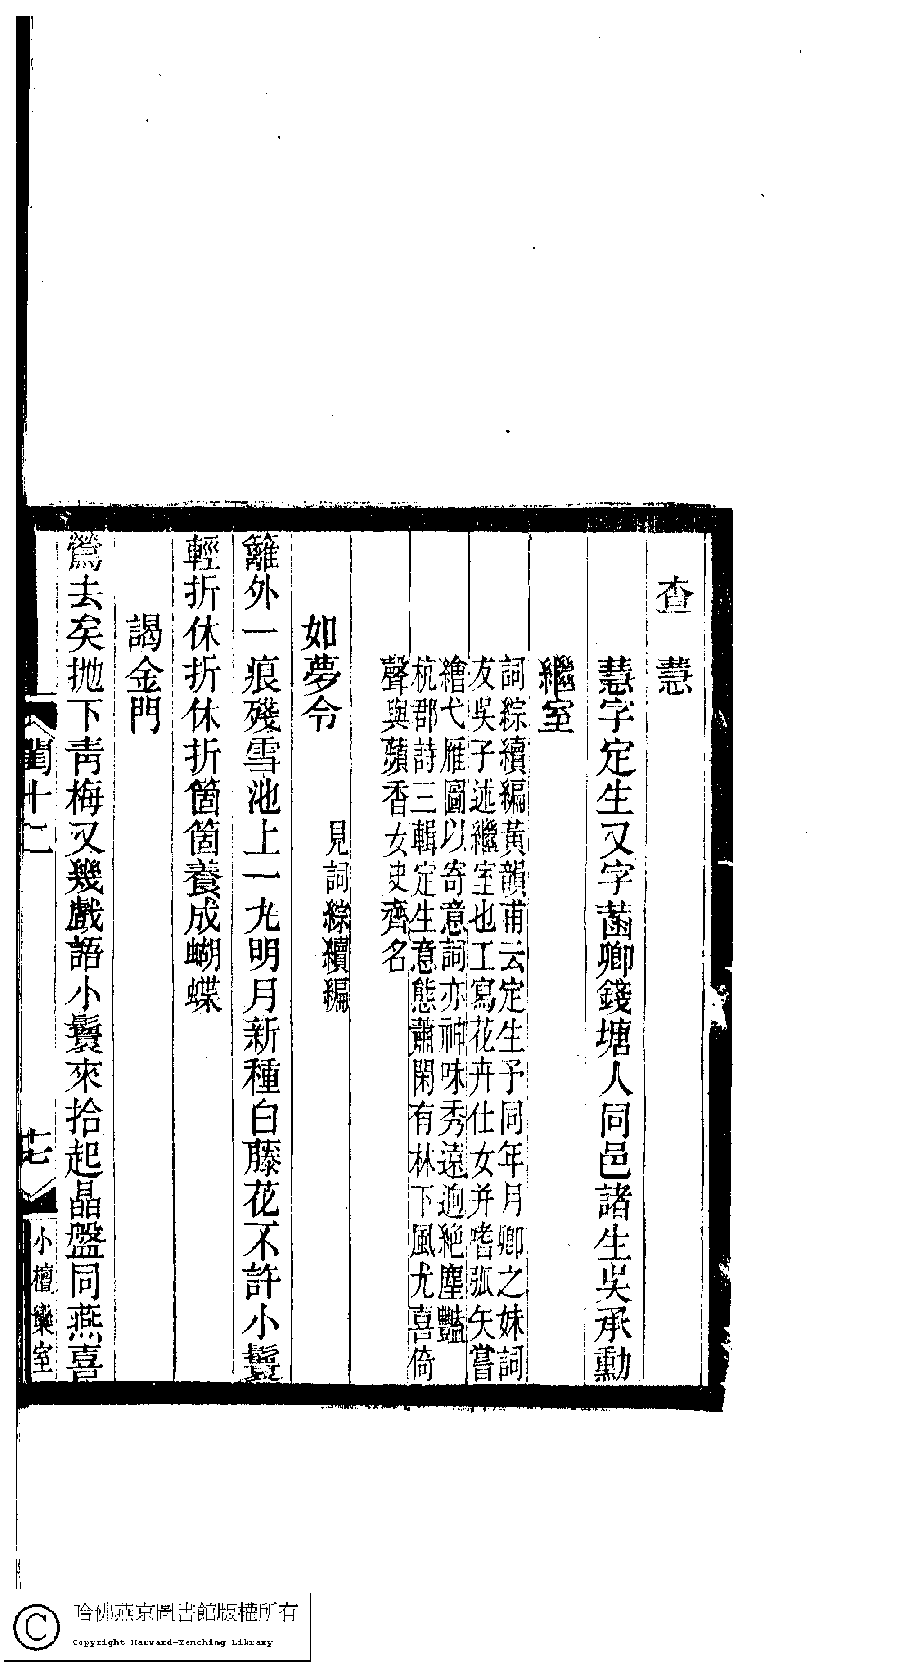 查慧
慧字定生又字菡卿錢塘人同邑諸生吳承勳
繼室
詞綜續編黃韻甫云定生予同年月卿之妹詞
友吳子述繼室也工寫花卉仕女并嗜弧矢嘗
繪弋雁圖以寄意詞亦神味秀遠迥絕塵豔
杭郡詩三輯定生意態蕭閑有林下風尤喜倚
聲與蘋香女史齊名
如夢令 見詞綜續編
籬外一痕殘雪池上一丸明月新種白藤花不許小鬟
輕折休折休折箇箇養成蝴蝶
謁金門
鶯去矣拋下靑梅又幾戲語小鬟來拾起晶盤同燕喜
閏十二
十七
小檀欒室
哈佛燕京圖書館版權所有
Copyright Harvard-Yenching Library